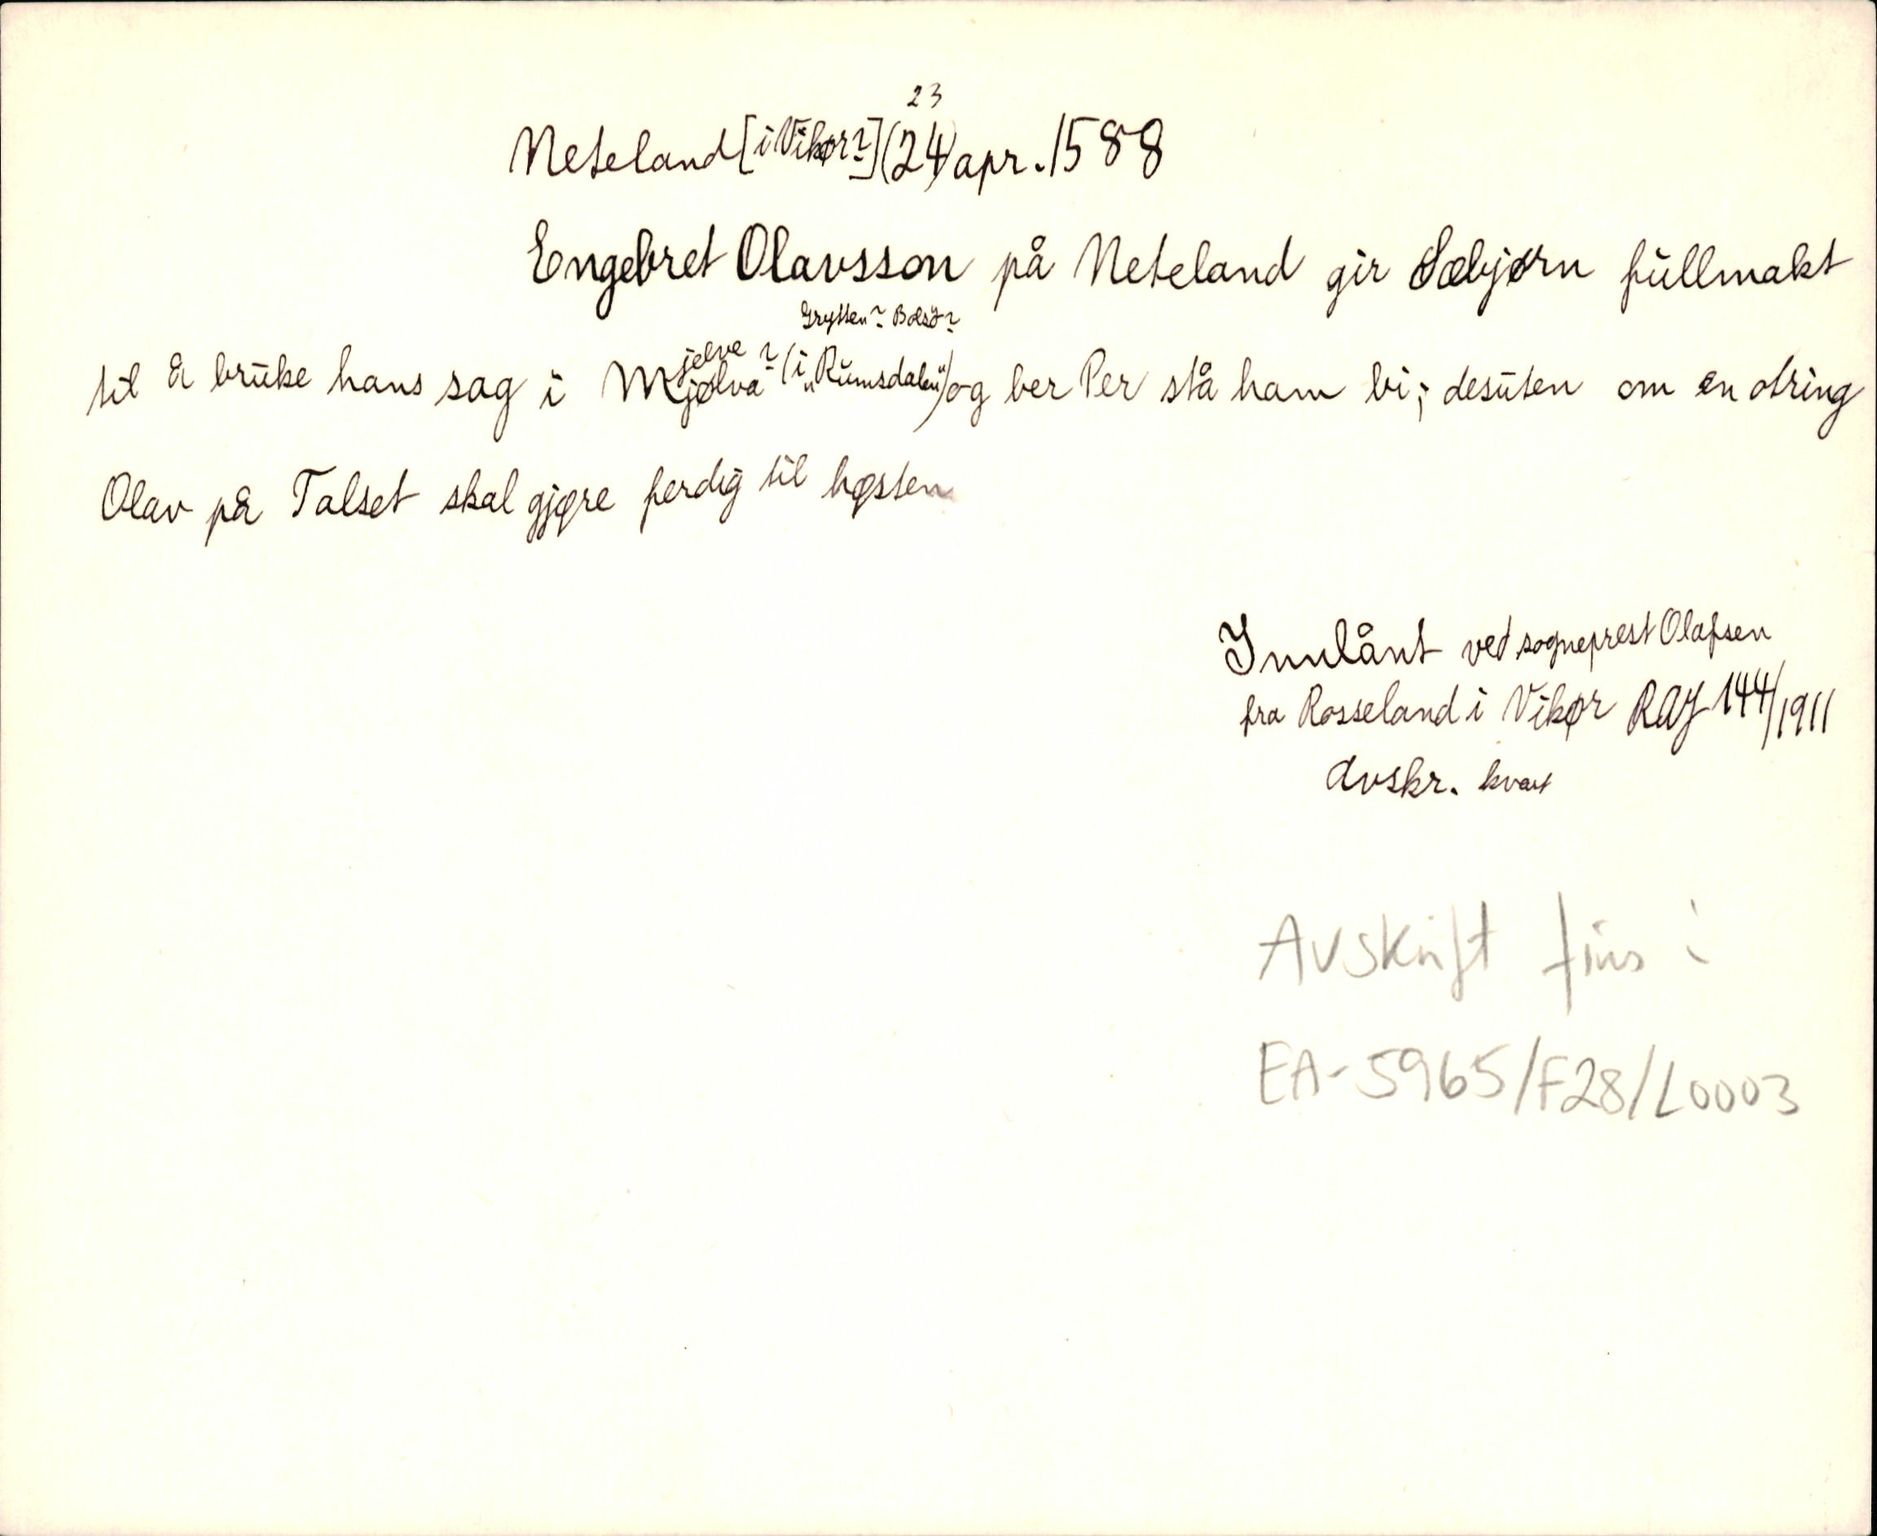 23
Neteland [i Vikør?] (24) apr. 1588
Engebret Olavsson på Neteland gir Sæbjørn fullmakt
Grytten? Bolsø?
jelve ?
til å bruke hans sag i Mjølva (i „Rumsdalen") og ber Per stå ham bi; desuten om en otring
Olav på Talset skal gjøre ferdig til høsten
Innlånt ved sogneprest Olafsen
fra Rosseland i Vikør RAJ 144/1911
Avskr. kvart
Avskrift fins i
EA-5965/F28/L0003